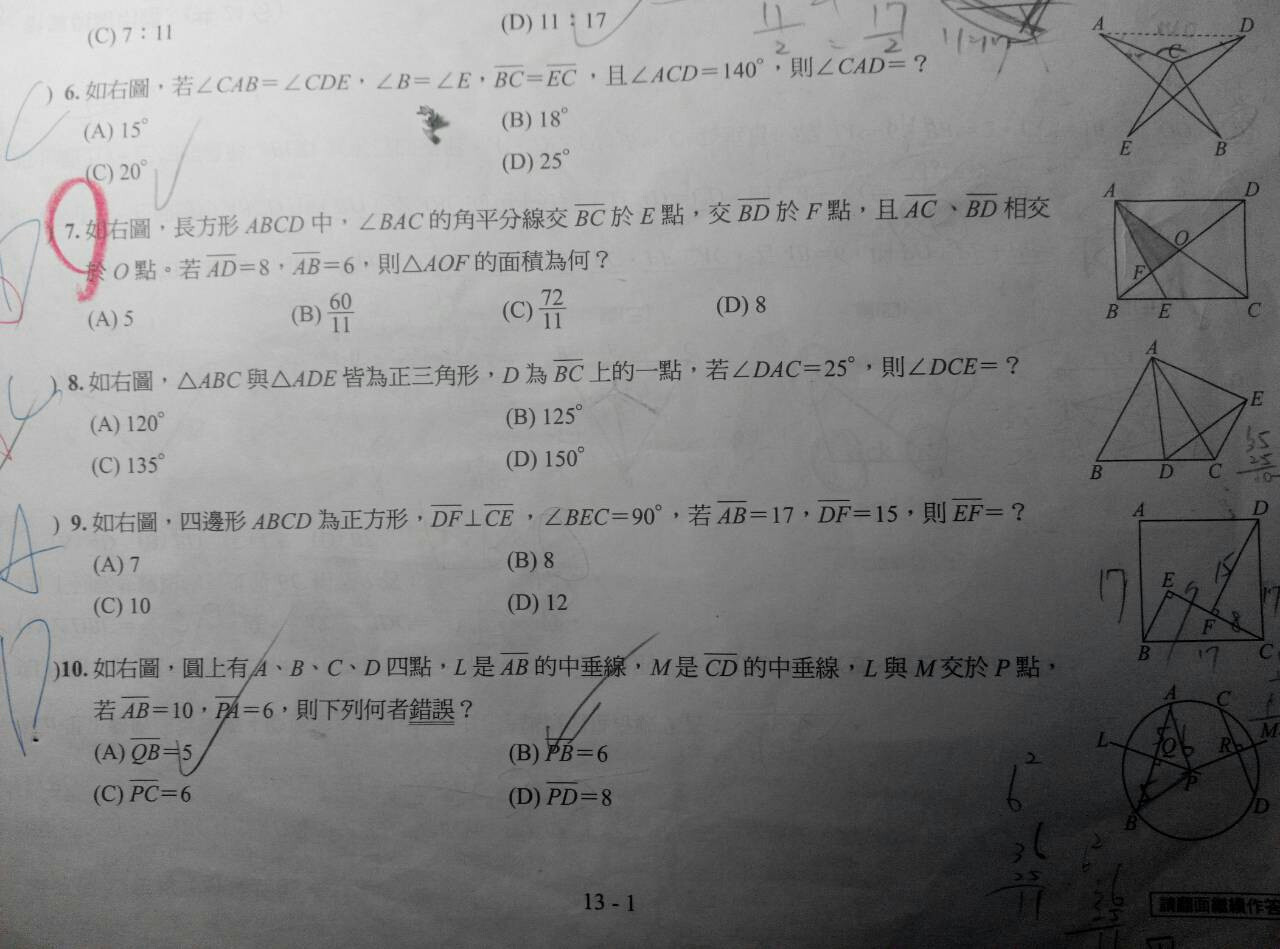 (C) 7：11
(D) 11：17
) 6. 如右圖，若∠CAB＝∠CDE，∠B＝∠E，BC＝EC，且∠ACD＝140°，則∠CAD＝？
(A) 15°
(B) 18°
(C) 20°
(D) 25°
) 7. 如右圖，長方形 ABCD 中，∠BAC 的角平分線交 BC 於 E 點，交 BD 於 F 點，且 AC、BD 相交
於 O 點。若 AD＝8，AB＝6，則△AOF 的面積為何？
(A) 5
(B) 60/11
(C) 72/11
(D) 8
) 8. 如右圖，△ABC 與△ADE 皆為正三角形，D 為 BC 上的一點，若∠DAC＝25°，則∠DCE＝？
(A) 120°
(B) 125°
(C) 135°
(D) 150°
A
) 9. 如右圖，四邊形 ABCD 為正方形，DF⊥CE，∠BEC＝90°，若 AB＝17，DF＝15，則 EF＝？
(A) 7
(B) 8
(C) 10
(D) 12
)10. 如右圖，圓上有 A、B、C、D 四點，L 是 AB 的中垂線，M 是 CD 的中垂線，L 與 M 交於 P 點，
若 AB＝10，PA＝6，則下列何者錯誤？
(A) QB＝5
(B) PB＝6
(C) PC＝6
(D) PD＝8
A D
C
E B
A D
O
F
B E C
A
E
B D C
35
25
10
A D
17
E 15 17
F 8
B 17 C
A C
L Q R M
P
B D
6²
36
25
11
13 - 1
請翻面繼續作答